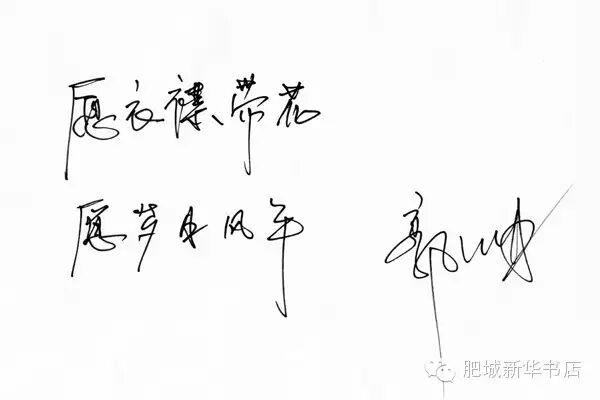 愿衣襟带花
愿岁月风平
肥城新华书店